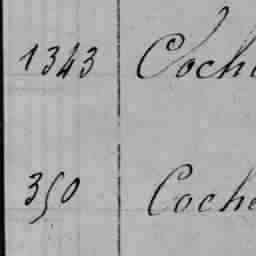 1343 Coch
350 Coche